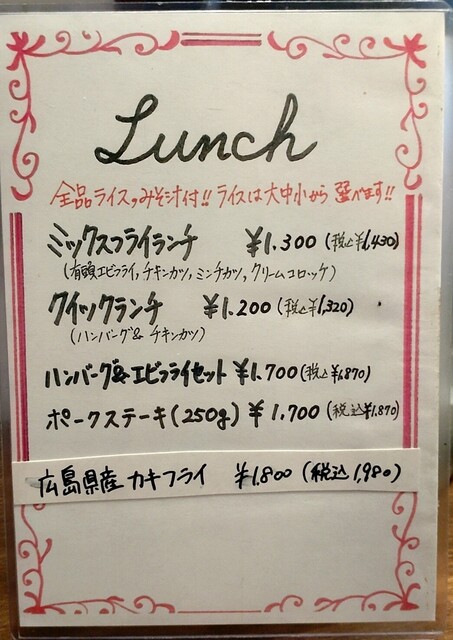 Lunch
全品ライス,みそ汁付!! ライスは大中小から 選べます!!
ミックスフライランチ ¥1.300 (税込¥1,430)
(有頭エビフライ,チキンカツ,ミンチカツ,クリームコロッケ)
クイックランチ ¥1.200 (税込¥1,320)
(ハンバーグ& チキンカツ)
ハンバーグ&エビフライセット ¥1.700(税込¥1.870)
ポークステーキ(250g) ¥1.700 (税込¥1.870)
広島県産 カキフライ ¥1.800 (税込1,980)